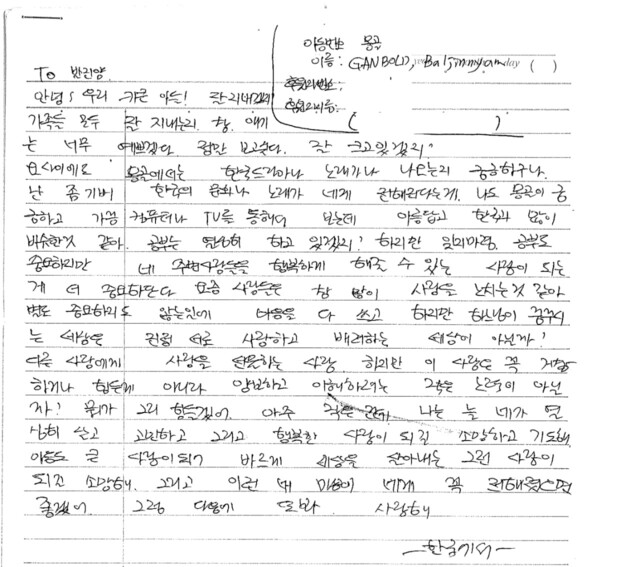 아동번호 몽골
이름: GANBOLD, Baljinnyamday ( )
후원자번호:
후원자이름:
( )
To 반진양
안녕~ 우리 귀큰 아들! 잘지내고
가족들 모두 잘 지내는지. 참. 애기
는 너무 예쁘겠다 정말 보고싶다. 잘 크고 있겠지?
요사이에도 몽골에서는 한국드라마나 노래가 나오는지 궁금하구나.
난 좀 기뻐 한국의 문화나 노래가 네게 전해진다는게. 나도 몽골이 궁
금하고 가끔 컴퓨터나 TV를 통해서 보는데 아름답고 한국과 많이
비슷한것 같아. 공부는 열심히 하고 있겠지? 하지만 잊지마렴. 공부도
중요하지만 네 주변사람들을 행복하게 해줄 수 있는 사람이 되는
게 더 중요하단다 요즘 사람들은 참 많이 사랑을 놓치는것 같아
별로 중요하지도 않는일에 마음을 다 쓰고 하지만 하나님이 꿈꾸시
는 세상은 서로 사랑하고 배려하는 세상이 아닌가?
다른 사람에게 사랑을 하는 사람. 하지만 이 사랑은 꼭
하거나 힘든게 아니라 양보하고 이해하려는 작은 노력이 아닌
까? 뭐가 그리 힘들겠어 아주 작은 나는 늘 네가 열
심히 살고 그리고 행복한 사람이 되길 소망하고 기도해.
마음도 큰 사람이 되기 바르게 세상을 살아내는 그런 사람이
되길 소망해. 그리고 이런 내 마음이 네게 꼭 전해졌으면
좋겠어. 그럼 다음에 또봐 사랑해
-한국에서-